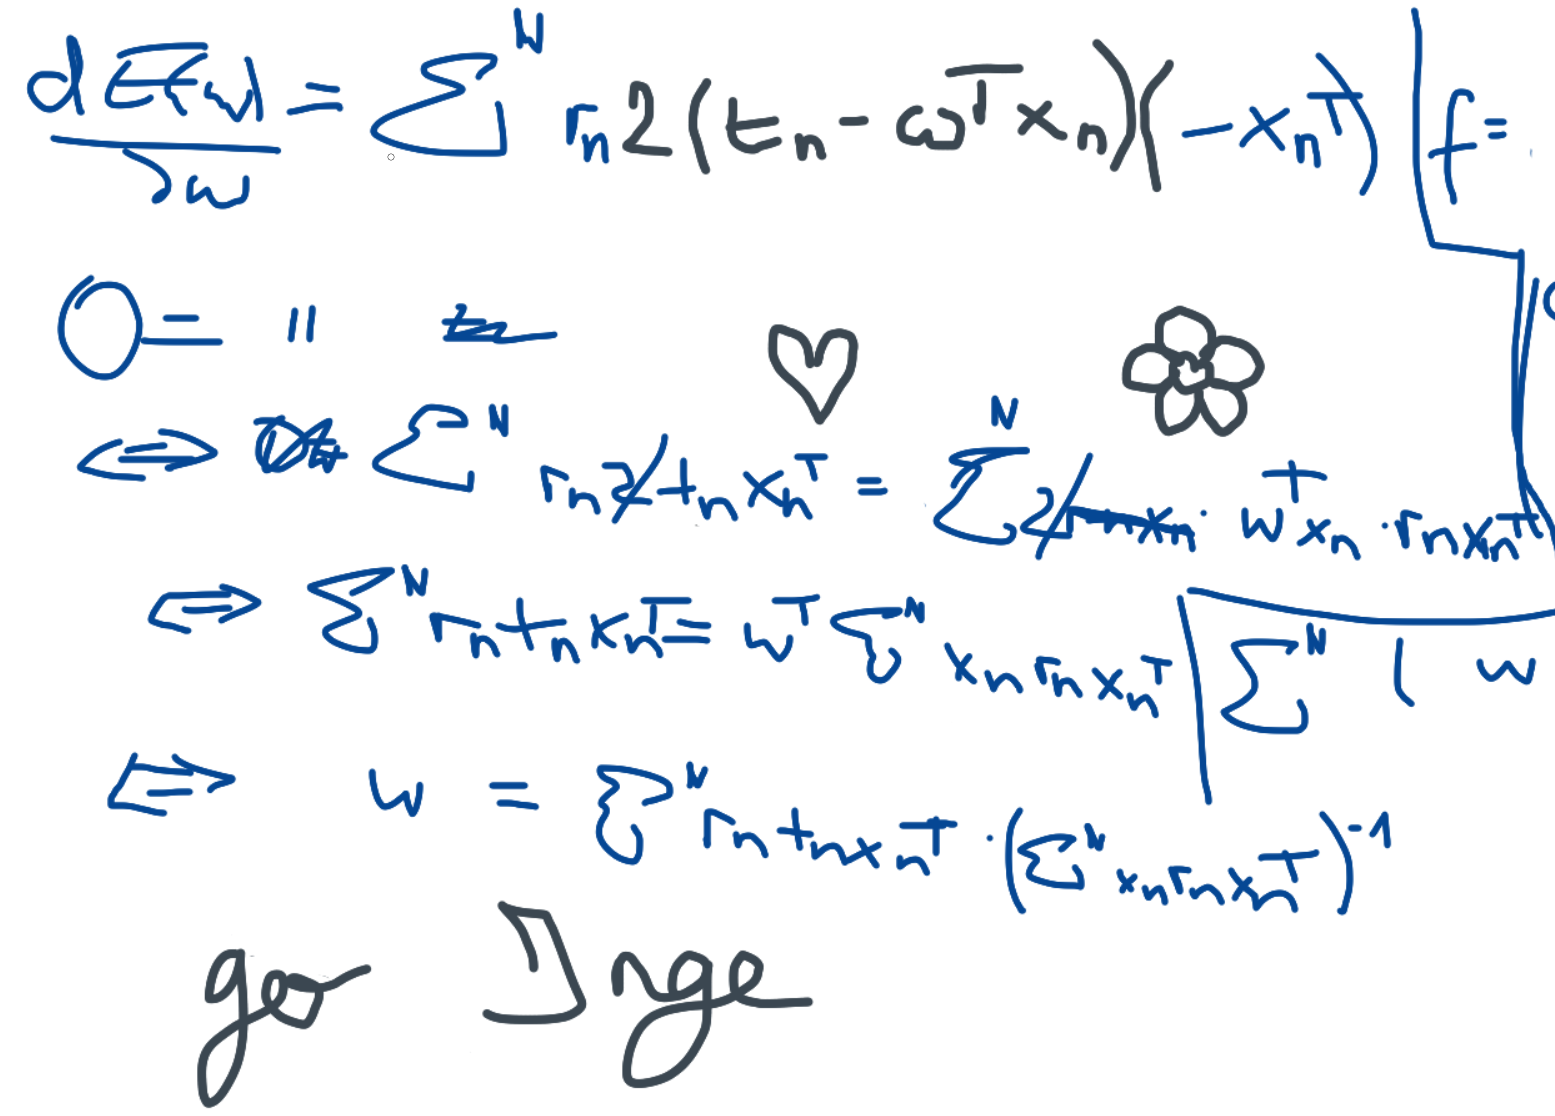 dE(w)/∂w = Σ^N r_n 2(t_n - w^T x_n)(-x_n^T) | f =
0 = "
⇔ Σ^N r_n 2 t_n x_n^T = Σ^N 2 r_n x_n · w^T x_n · r_n x_n^T
⇔ Σ^N r_n t_n x_n^T = w^T Σ^N x_n r_n x_n^T | Σ^N ( w
⇔ w = Σ^N r_n t_n x_n^T · (Σ^N x_n r_n x_n^T)^-1
go Inge